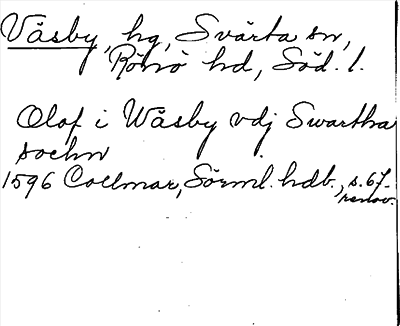 Väsby, hg, Svärta sn,
Rönö hd, Söd. l.
Olof i Wäsby vdj Swartha
sochn
1596 Collmar, Sörml. hdb., s. 67.
renov.